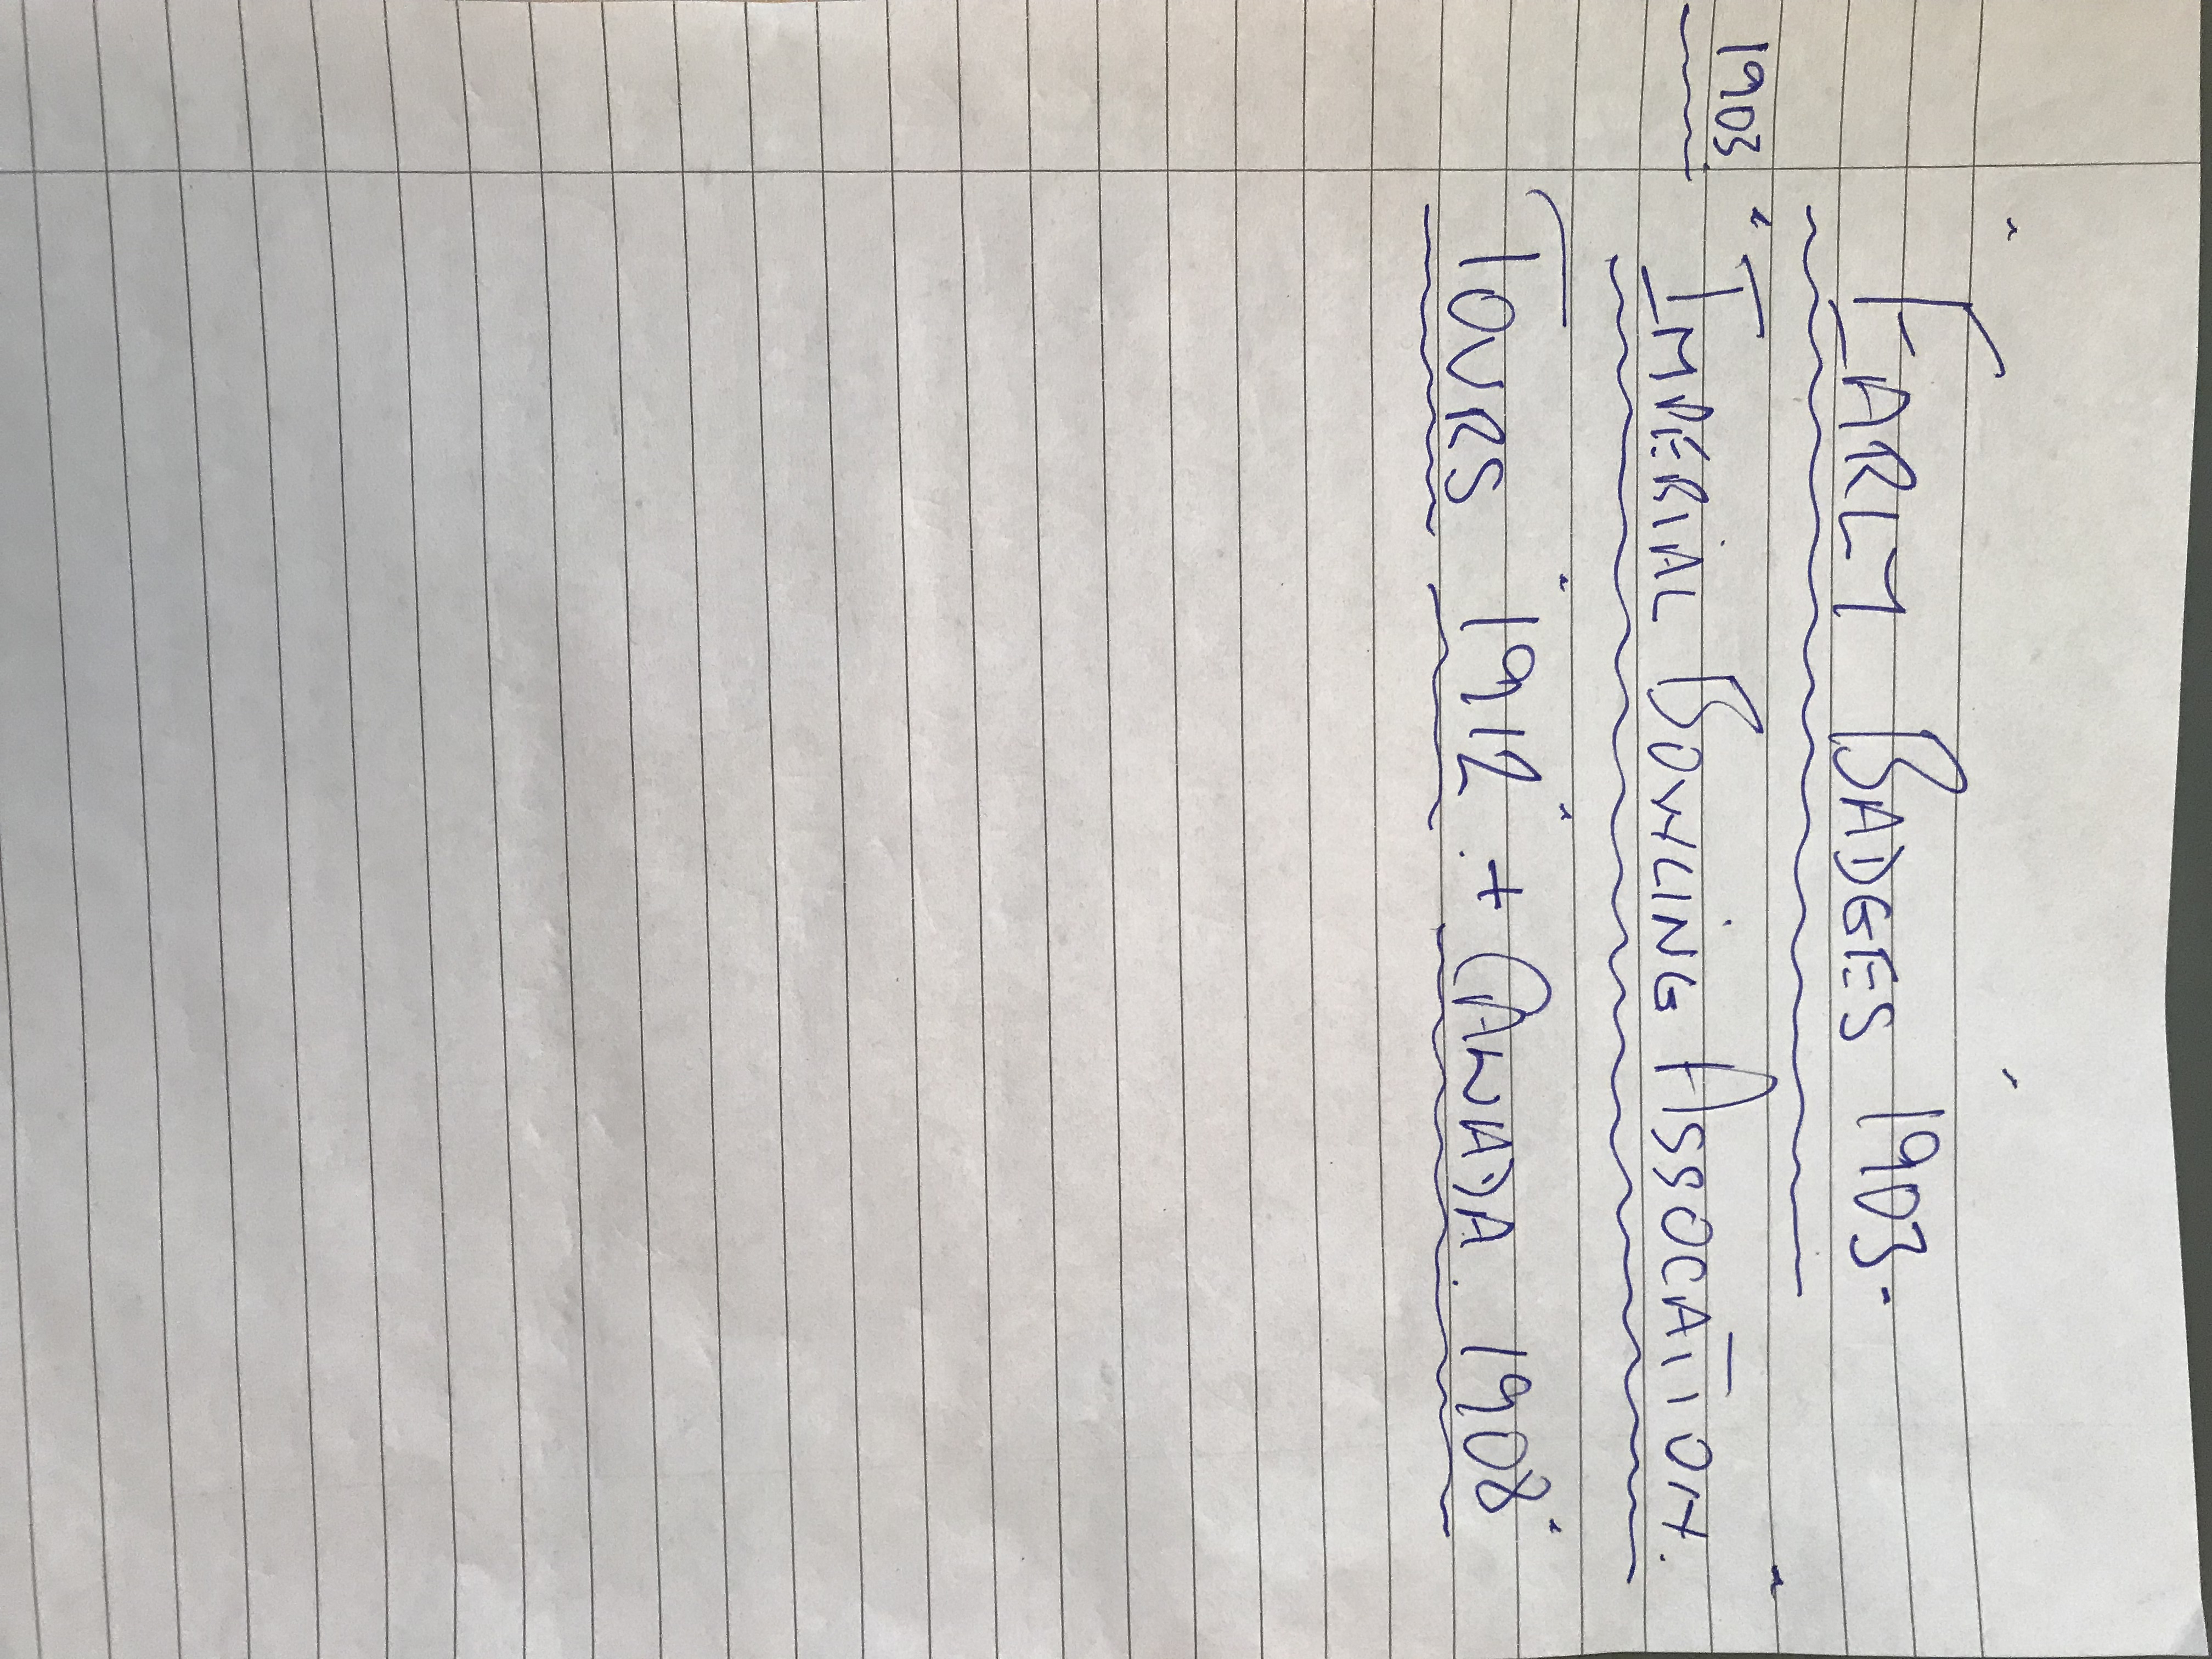 " EARLY BADGES 1903. "
1903 " IMPERIAL BOWLING ASSOCATION. "
TOURS "1912" + CANADA. 1908"